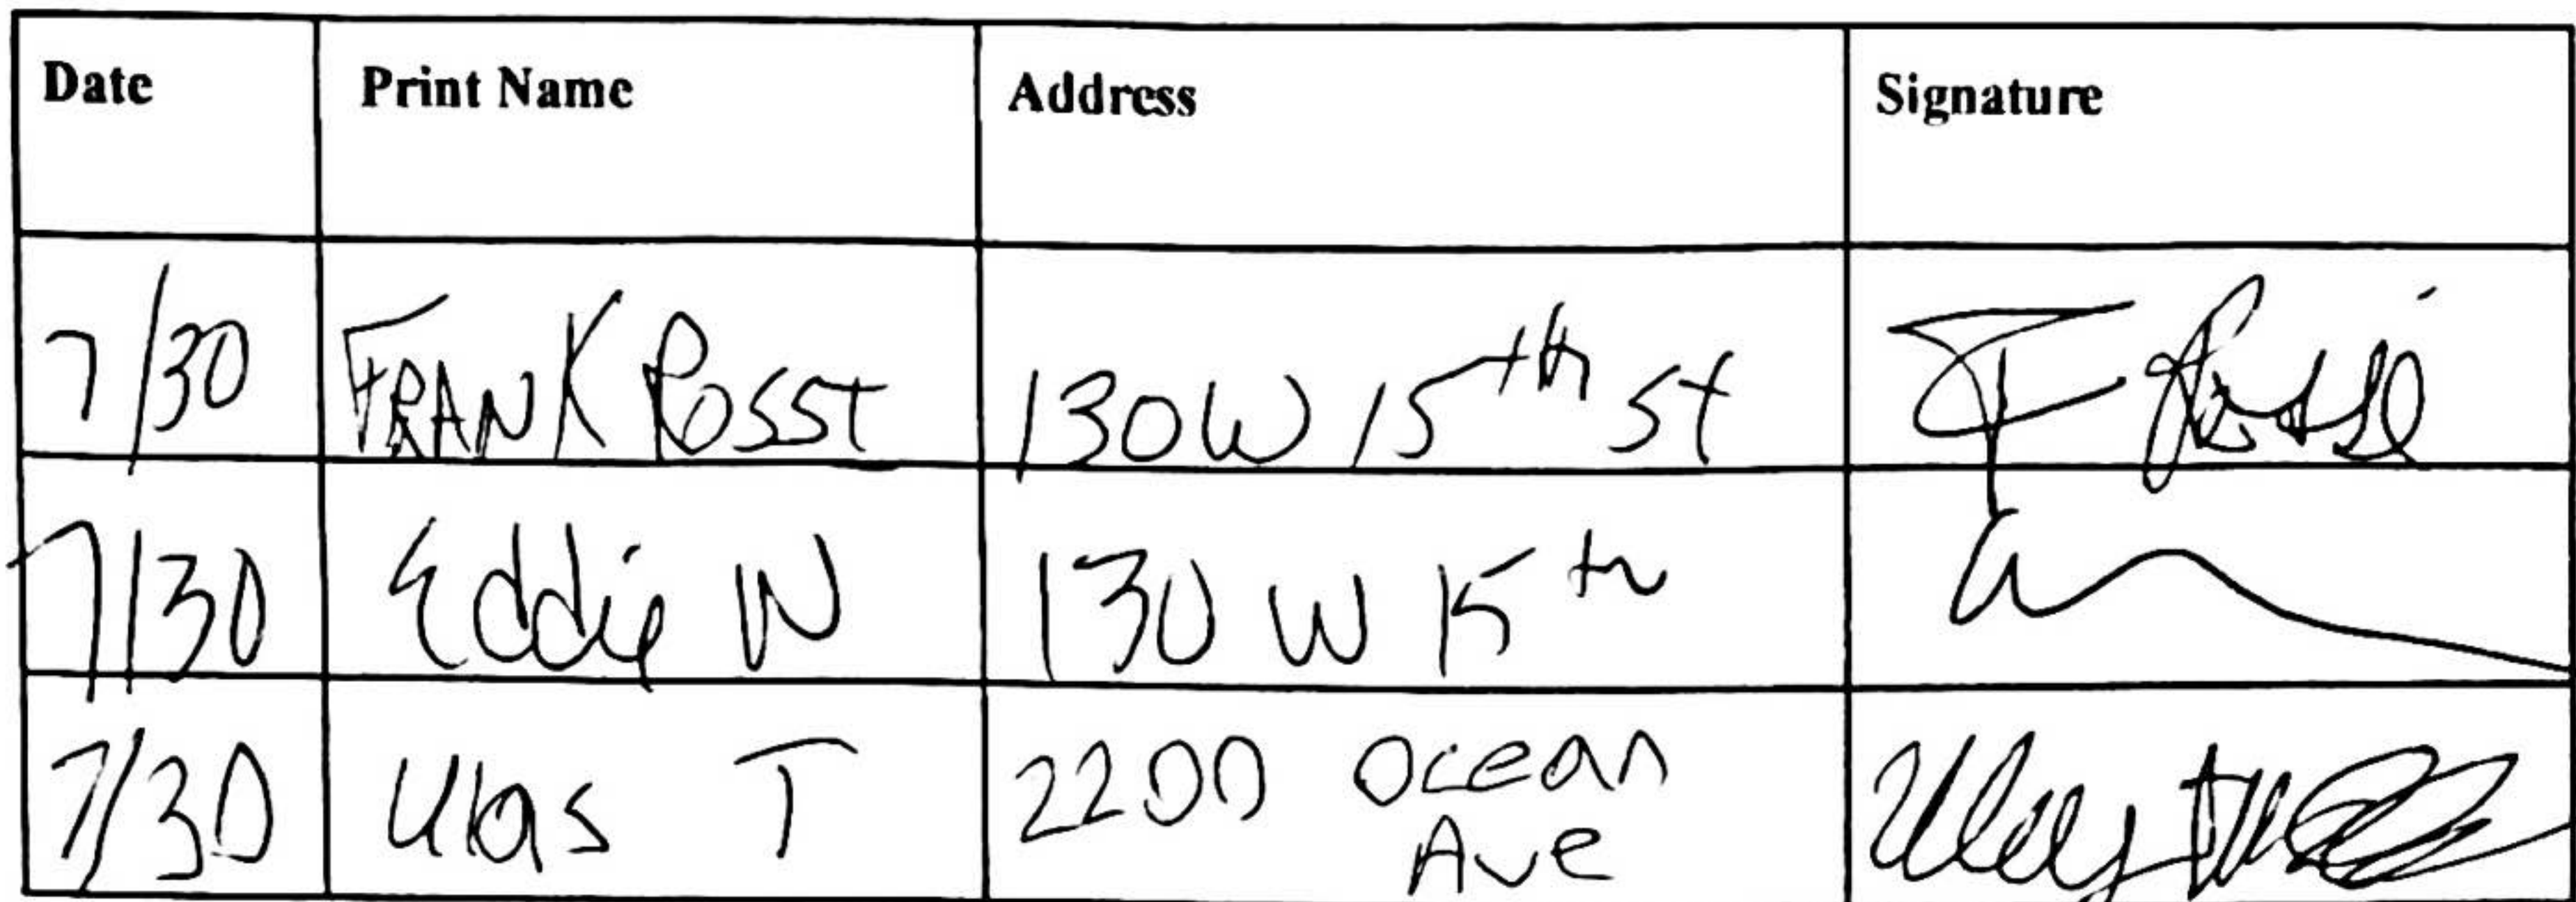 Date Print Name Address Signature
7/30 FRANK ROSSI 130 W 15th St F Rossi
7/30 Eddie W 130 W 15th
7/30 T 2200 Ocean
Ave